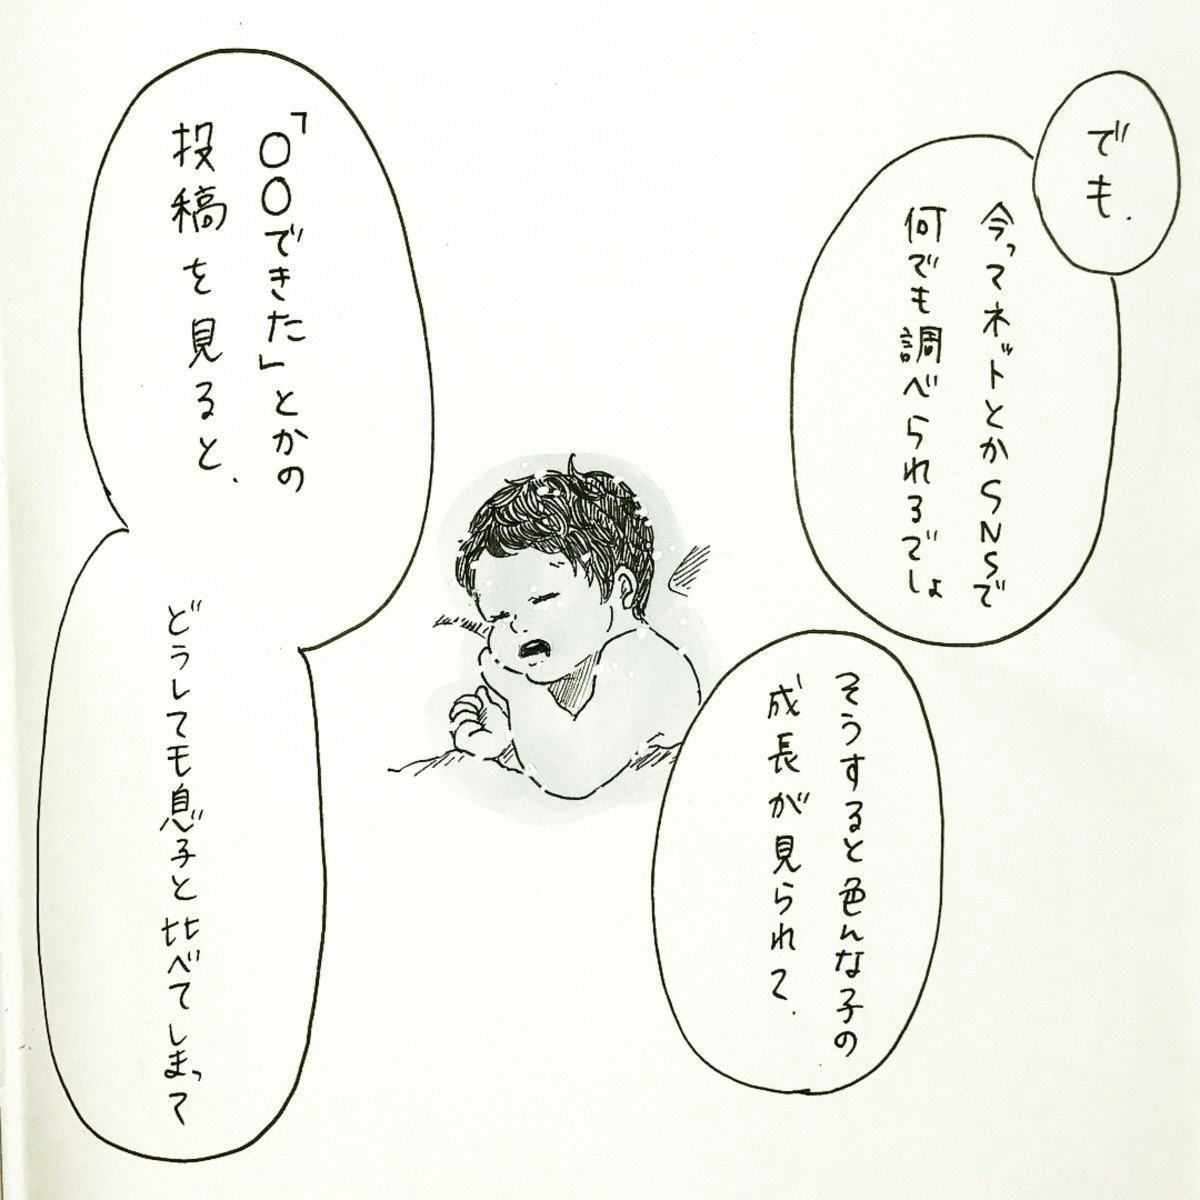 でも、
今ってネットとかSNSで
何でも調べられるでしょ
そうすると色んな子の
成長が見られて、
「○○できた」とかの
投稿を見ると、
どうしても息子と比べてしまって